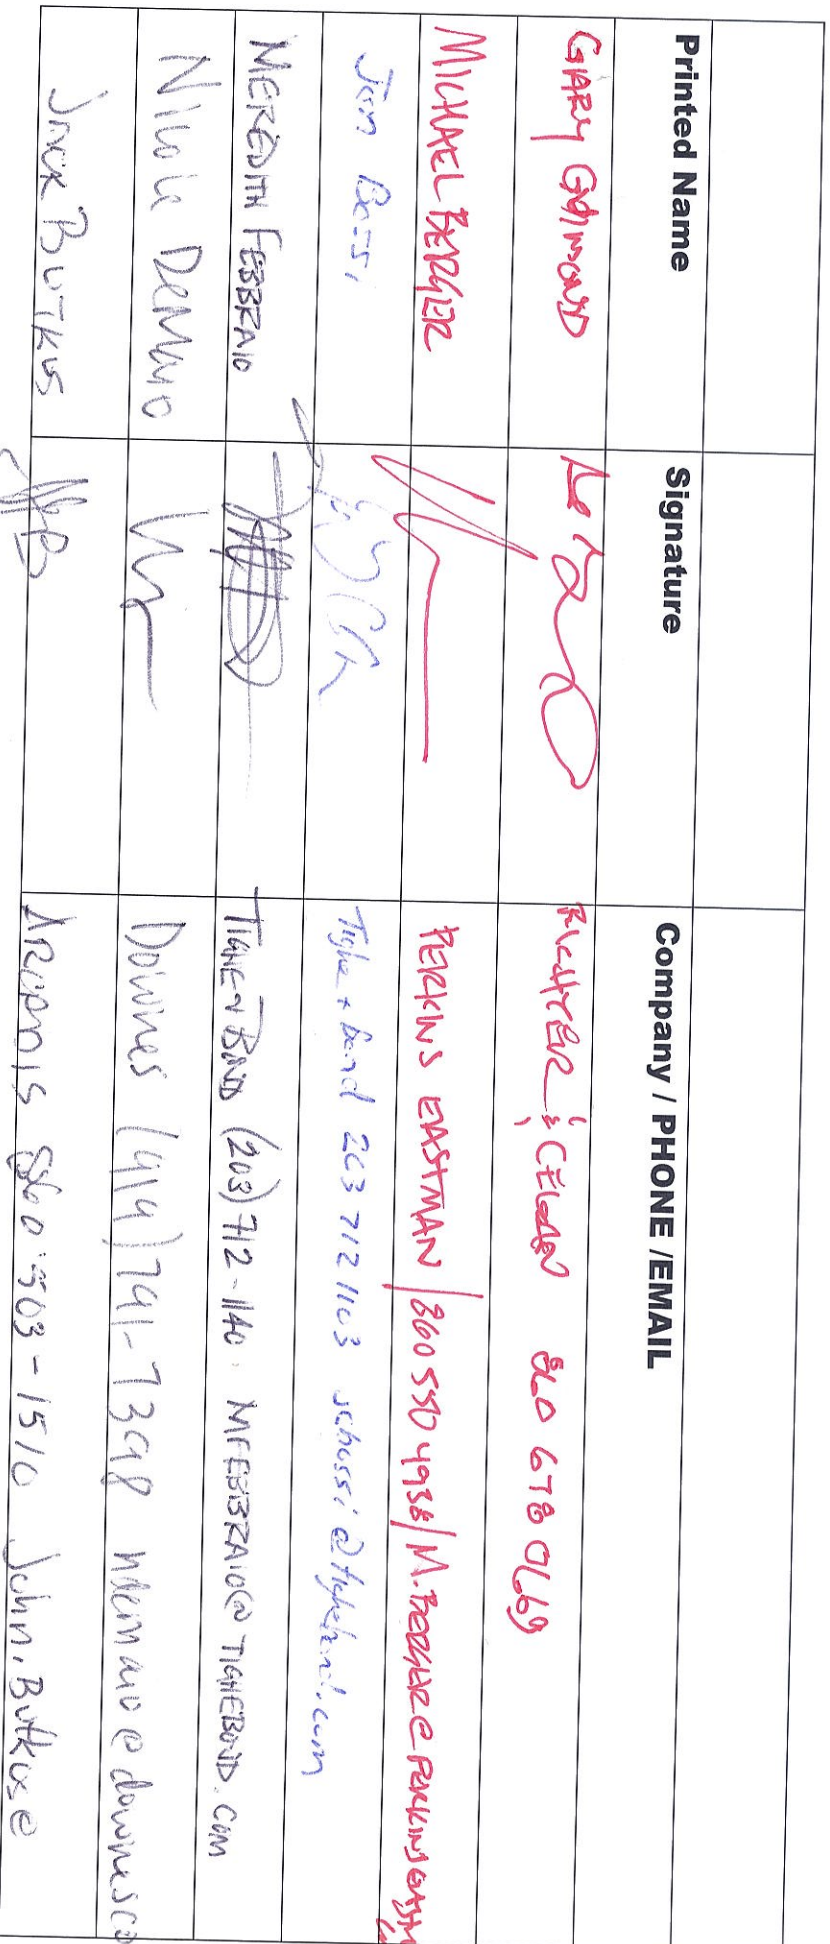 Printed Name Signature Company / PHONE /EMAIL
GARY GUIMOND RICHTER & CEGAN 860 678 0669
MICHAEL BERGER PERKINS EASTMAN / 860 550 4938 / M.BERGER@PERKINSEASTM
Tighe + Bond 203 712 1103 @tighebond.com
MEREDITH FEBBRAIO TIGHE & BOND (203) 712-1140 MFEBBRAIO@TIGHEBOND.COM
Nicole Demaio Downes (914) ndemaio@downesco
Jack BUTKUS ARCADIS 860-503-1510 John.Butkus@